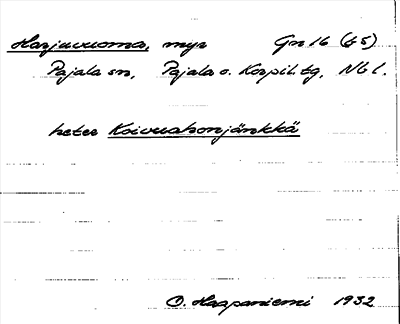 Harjuvuoma, myr Gn 16 (65)
Pajala sn, Pajala o. Korpil. tg, Nb l.
heter Koivuahonjänkkä
O. Haapaniemi 1932